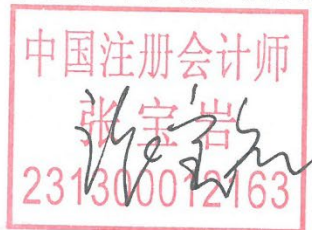 中国注册会计师
张宝岩
231300012163